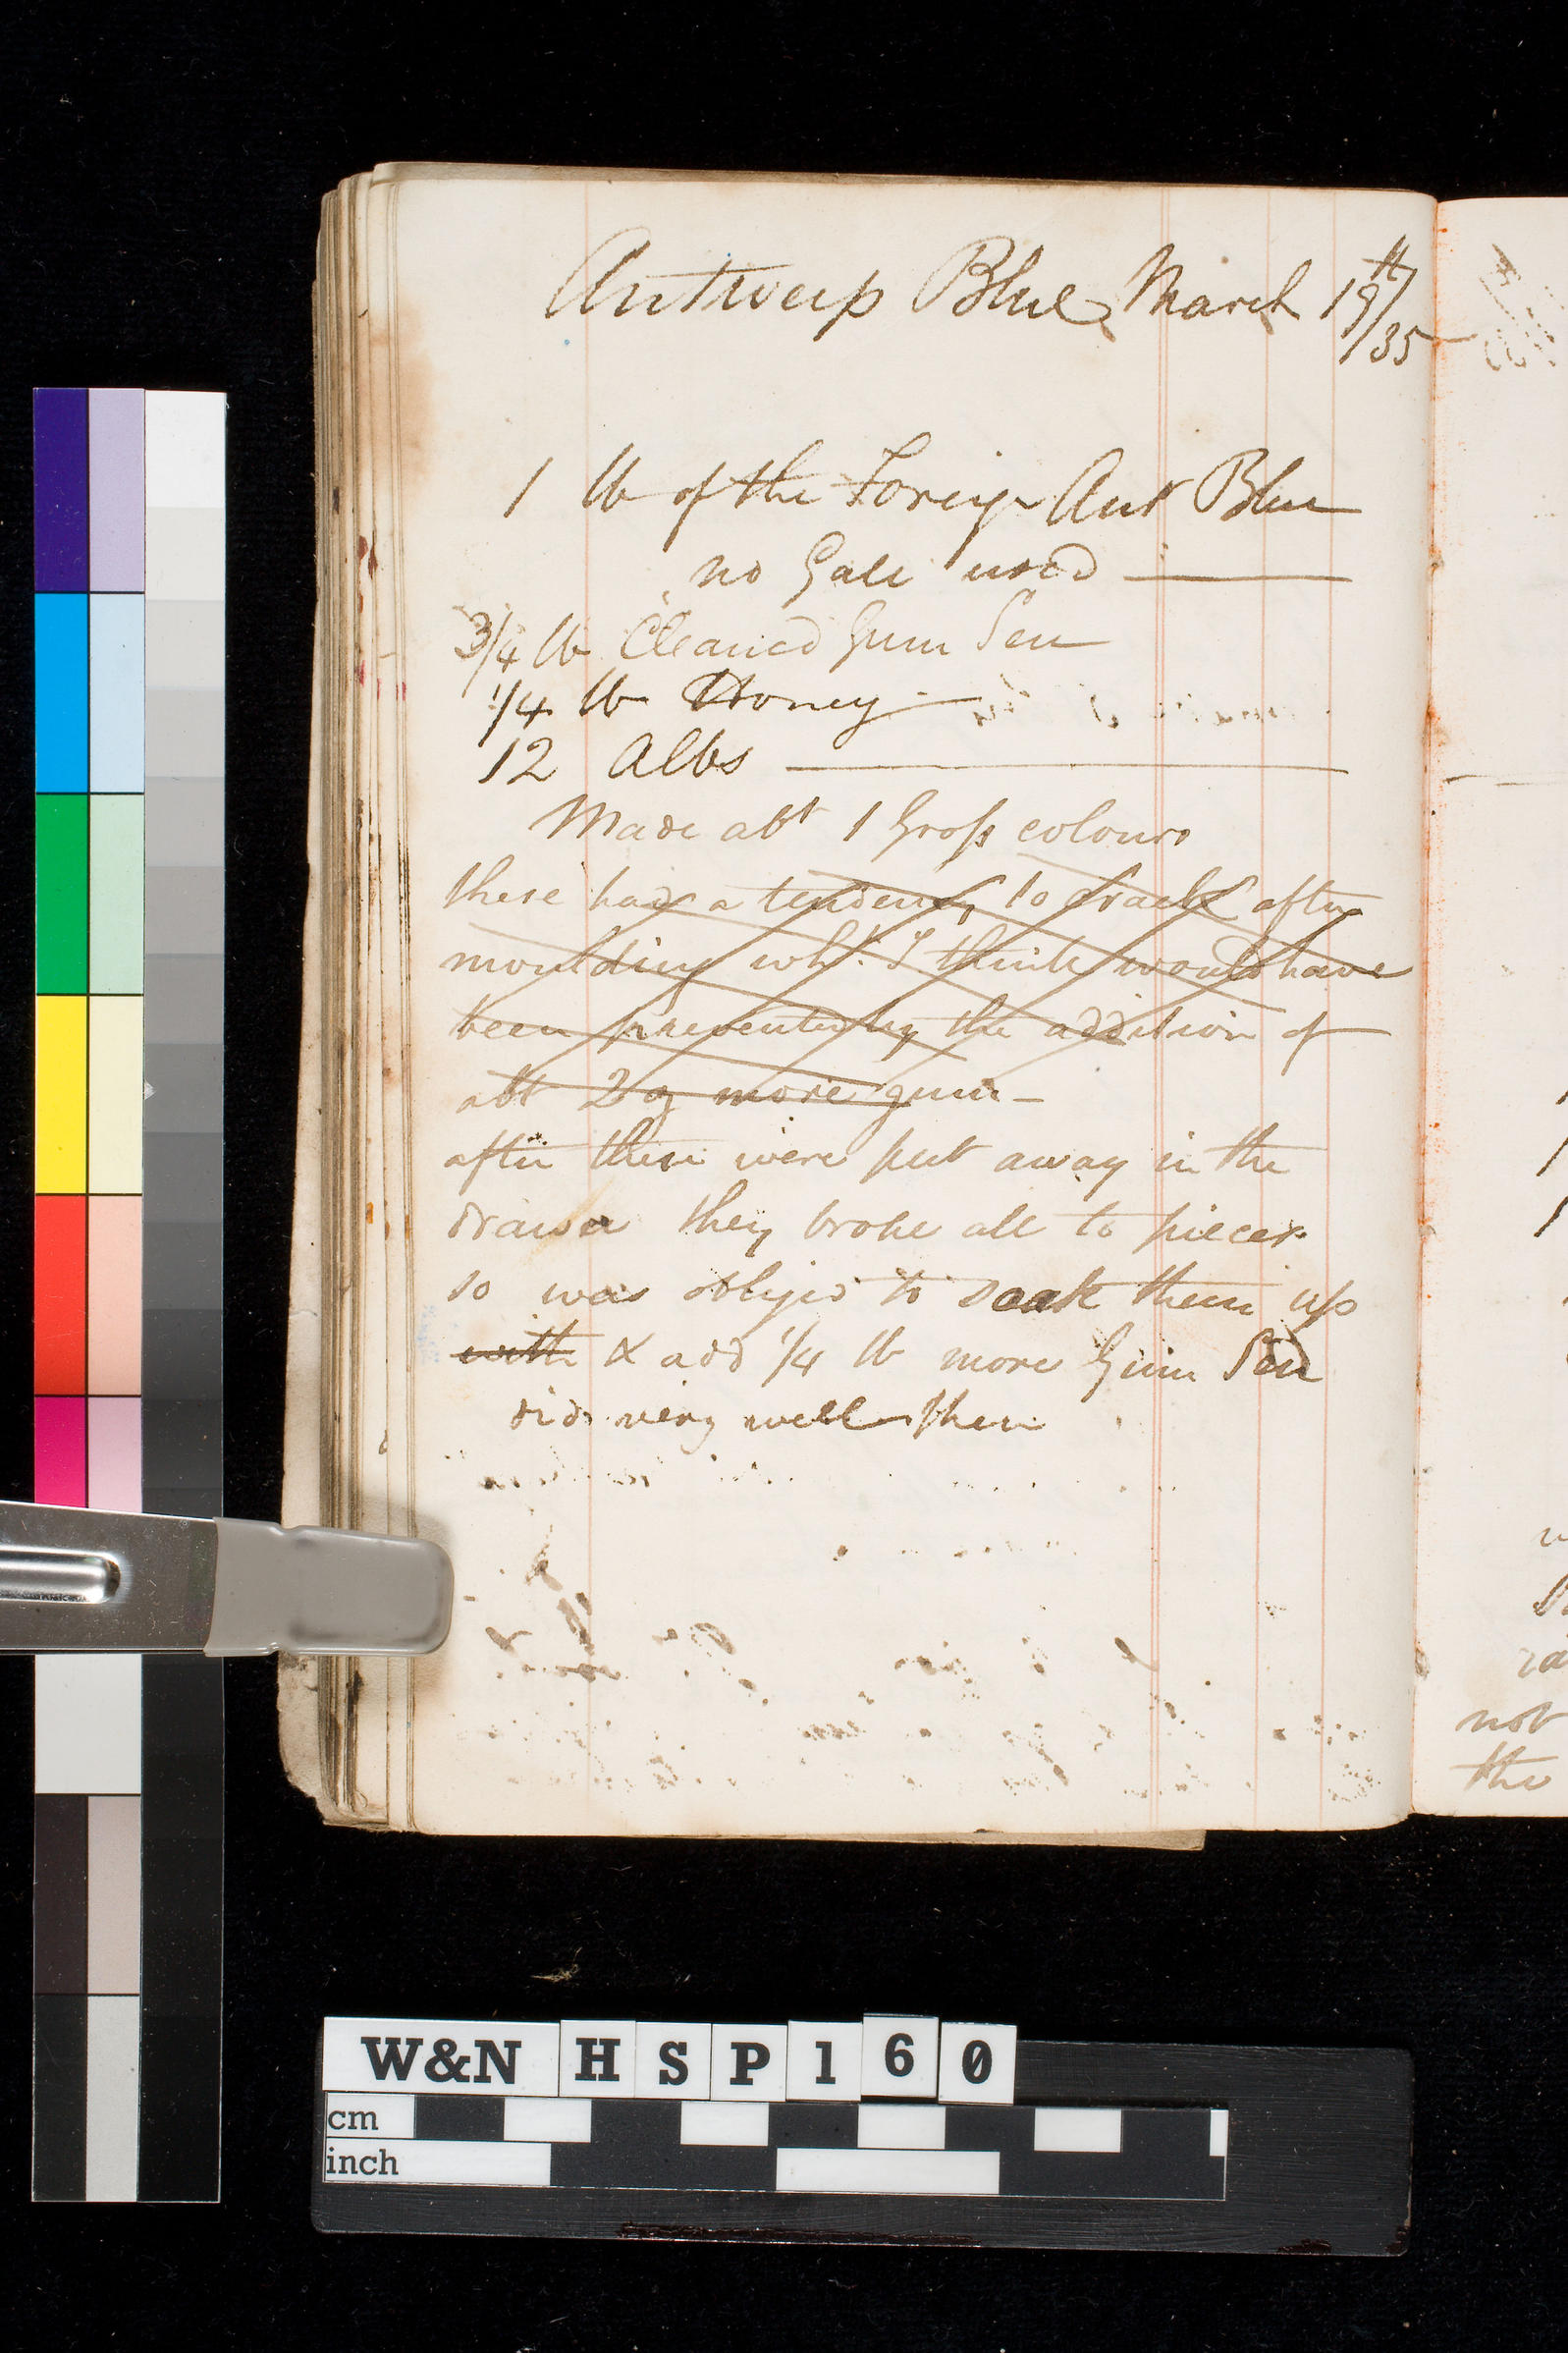 Antwerp Blue, March 19th/35
1 lb of the Foreign Ant Blue
no Gall used
3/4 lb Cleaned Gum Sen
1/4 lb Honey
12 Albs
Made abt 1 Gross colours
these had a tendency to crack after
moulding wh. I think would have
been prevented by the addition of
abt 2 oz more gum -
after these were put away in the
drawer they broke all to pieces
so was obliged to soak them up
with & add 1/4 lb more Gum Sen
did very well then
not
the
W&N HSP160
cm
inch